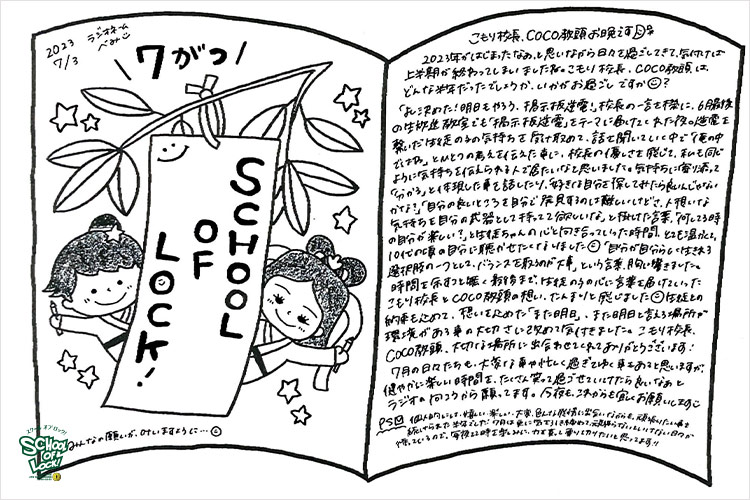 2023
7/3
ラジオネーム
べみ
7がつ
SCHOOL
OF
LOCK!
みんなの願いが、叶いますように…
SCHOOL
OF
LOCK!
こもり校長、COCO教頭お晩です
2023年がはじまったなぁ、と思いながら日々を過ごしてきて、気付けば
上半期が終わってしまいましたね。こもり校長、COCO教頭は、
どんな半年だったでしょうか、いかがお過ごしですか?
「よし決めた!明日もやろう、掲示板逆電!」校長の一言を機に、6月最後
の生放送教室でも「掲示板逆電」をテーマに届けてくれた夜の逆電を
繋いだ生徒の子の気持ちを受け取めて、話を聞いていく中で「俺の中
ではね」とひとつの考えを伝えた事に、校長の優しさを感じて、私も同じ
ように気持ちを伝えられる人で居たいなと思いました。気持ちに寄り添って
「分かる」と体現した事を話したり、「好きな自分を探してみたら良いんじゃない
かな?」「自分の良いところを自分で発見するのは難しいけどさ、人想いな
気持ちを自分の武器として持ってて欲しいな」と掛けた言葉、「何してる時
の自分が楽しい?」と生徒ちゃんの心と向き合っていった時間、とても温かくて、
10代の頃の自分に聴かせたくなりました 「自分が自分らしく生きれる
選択肢の一つとして、バランスを取るのが大事」という言葉、胸に響きました。
時間を余すこと無く最後まで、生徒の子の心に言葉を届けていった
こもり校長とCOCO教頭の想い、たんまりと感じました 生徒との
約束も込めて、想いを込めた「また明日」、また明日と言える場所が
環境がある事の大切さを改めて気付きました。こもり校長、
COCO教頭、大切な場所に出会わせてくれてありがとうございます!
7月の日々たちも、大変な事や忙しく過ぎてゆく事もあると思いますが、
健やかに楽しい時間を、たくさん笑って過ごせていけたら良いなぁと
ラジオの向こうから願ってます。今夜も、これからも宜しくお願いします
PS 個人的にして、嬉しい、楽しい、大変、色んな感情に出会いながらも、頑張りたい事を
続けられた半年でした
待っているので、今夜22時を楽しみに、力を貰って乗り切りたいと思ってます!!